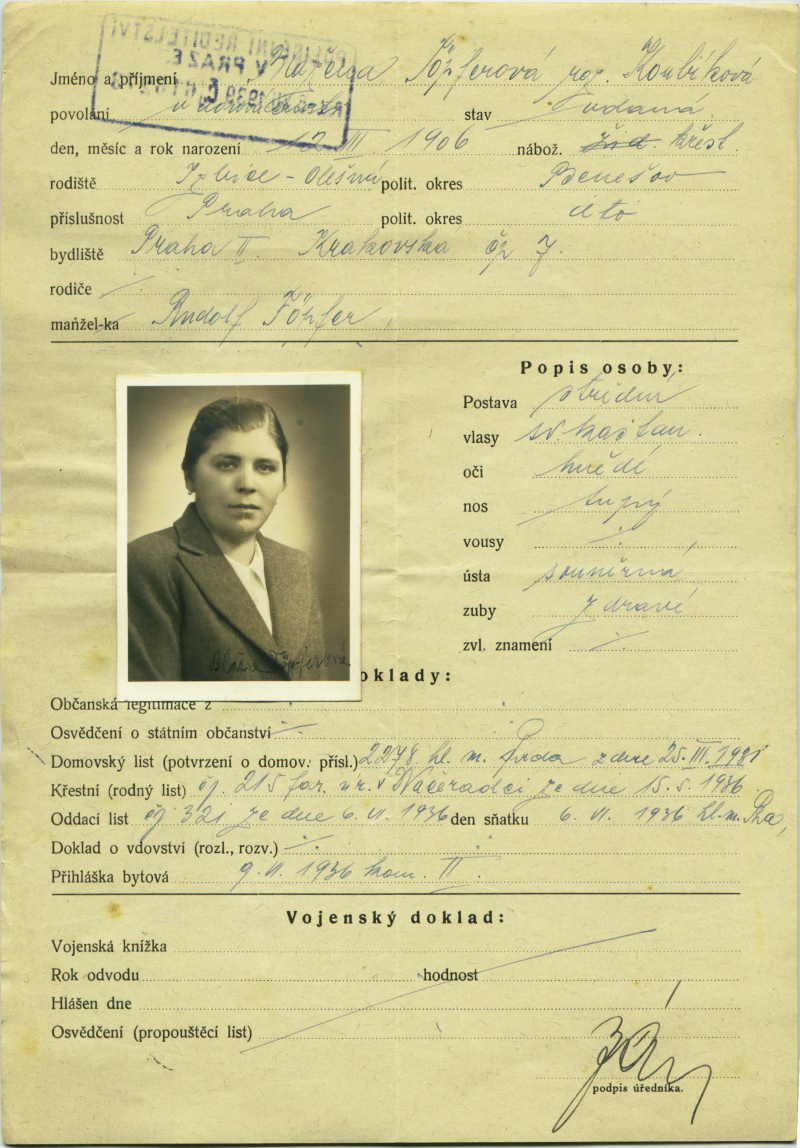 Jméno a příjmení Töpferová roz. Koubíková
povolání stav vdaná
den, měsíc a rok narození 12 III 1906 nábož. žid. křest.
rodiště Olešná polit. okres Benešov
příslušnost Praha polit. okres dto
bydliště Praha II. Krakovská čp 7.
rodiče
manžel-ka Rudolf Töpfer
Popis osoby:
Postava střední
vlasy sv. kaštan.
oči hnědé
nos tupý
vousy
ústa souměrná
zuby zdravé
zvl. znamení
Töpferová
oklady:
Občanská legitimace z
Osvědčení o státním občanství
Domovský list (potvrzení o domov. přísl.) 2278 hl. m. ze dne 25. III. 1931
Křestní (rodný list) čj. 215 far. úř. v Načeradci ze dne 15. 5. 1936
Oddací list čj 321 ze dne 6. VI. 1936 den sňatku 6. VI. 1936 hl. m. Pha,
Doklad o vdovství (rozl., rozv.)
Přihláška bytová 9. VI. 1936 kom. II.
Vojenský doklad:
Vojenská knížka
Rok odvodu hodnost
Hlášen dne
Osvědčení (propouštěcí list)
podpis úředníka.
POLICEJNÍ ŘEDITELSTVÍ
V PRAZE